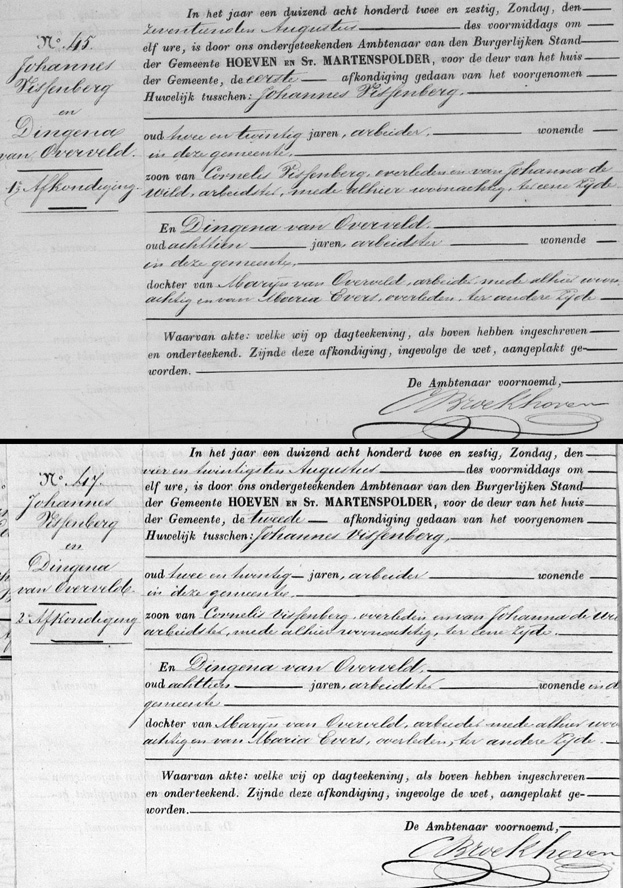 N.º 45.
Johannes
Vissenberg
en
Dingena
van Overveld.
1.e Afkondeging
In het jaar een duizend acht honderd twee en zestig, Zondag, den
zeventienden Augustus des voormiddags om
elf ure, is door ons ondergeteekenden Ambtenaar van den Burgerlijken Stand
der Gemeente HOEVEN EN ST. MARTENSPOLDER, voor de deur van het huis
der Gemeente, de eerste afkondiging gedaan van het voorgenomen
Huwelijk tusschen: Johannes Vissenberg.
oud twee en twintig jaren, arbeider. wonende
in deze gemeente,
zoon van Cornelis Vissenberg, overleden en van Johanna de
Wild, arbeidster, mede alhier woonachtig, ter eene zijde.
En Dingena van Overveld.
oud achttien jaren, arbeidster wonende
in deze gemeente,
dochter van Marijn van Overveld, arbeider mede alhier woon
achtig en van Maria Evers, overleden, ter andere zijde
Waarvan akte: welke wij op dagteekening, als boven hebben ingeschreven
en onderteekend. Zijnde deze afkondiging, ingevolge de wet, aangeplakt ge-
worden.
De Ambtenaar voornoemd,
CBroekhoven
N.º 47.
Johannes
Vissenberg
en
Dingena
van Overveld.
2.e Afkondeging
In het jaar een duizend acht honderd twee en zestig, Zondag, den
vier en twintigsten Augustus des voormiddags om
elf ure, is door ons ondergeteekenden Ambtenaar van den Burgerlijken Stand
der Gemeente HOEVEN EN ST. MARTENSPOLDER, voor de deur van het huis
der Gemeente, de tweede afkondiging gedaan van het voorgenomen
Huwelijk tusschen: Johannes Vissenberg,
oud twee en twintig jaren, arbeider wonende
in deze gemeente
zoon van Cornelis Vissenberg, overleden en van Johanna de Wi
arbeidster, mede alhier woonachtig, ter eene zijde.
En Dingena van Overveld.
oud achttien jaren, arbeidster wonende in d
gemeente
dochter van Marijn van Overveld, arbeider mede alhier woo
achtig en van Maria Evers, overleden, ter andere zijde.
Waarvan akte: welke wij op dagteekening, als boven hebben ingeschreven
en onderteekend. Zijnde deze afkondiging, ingevolge de wet, aangeplakt ge-
worden.
De Ambtenaar voornoemd,
CBroekhoven